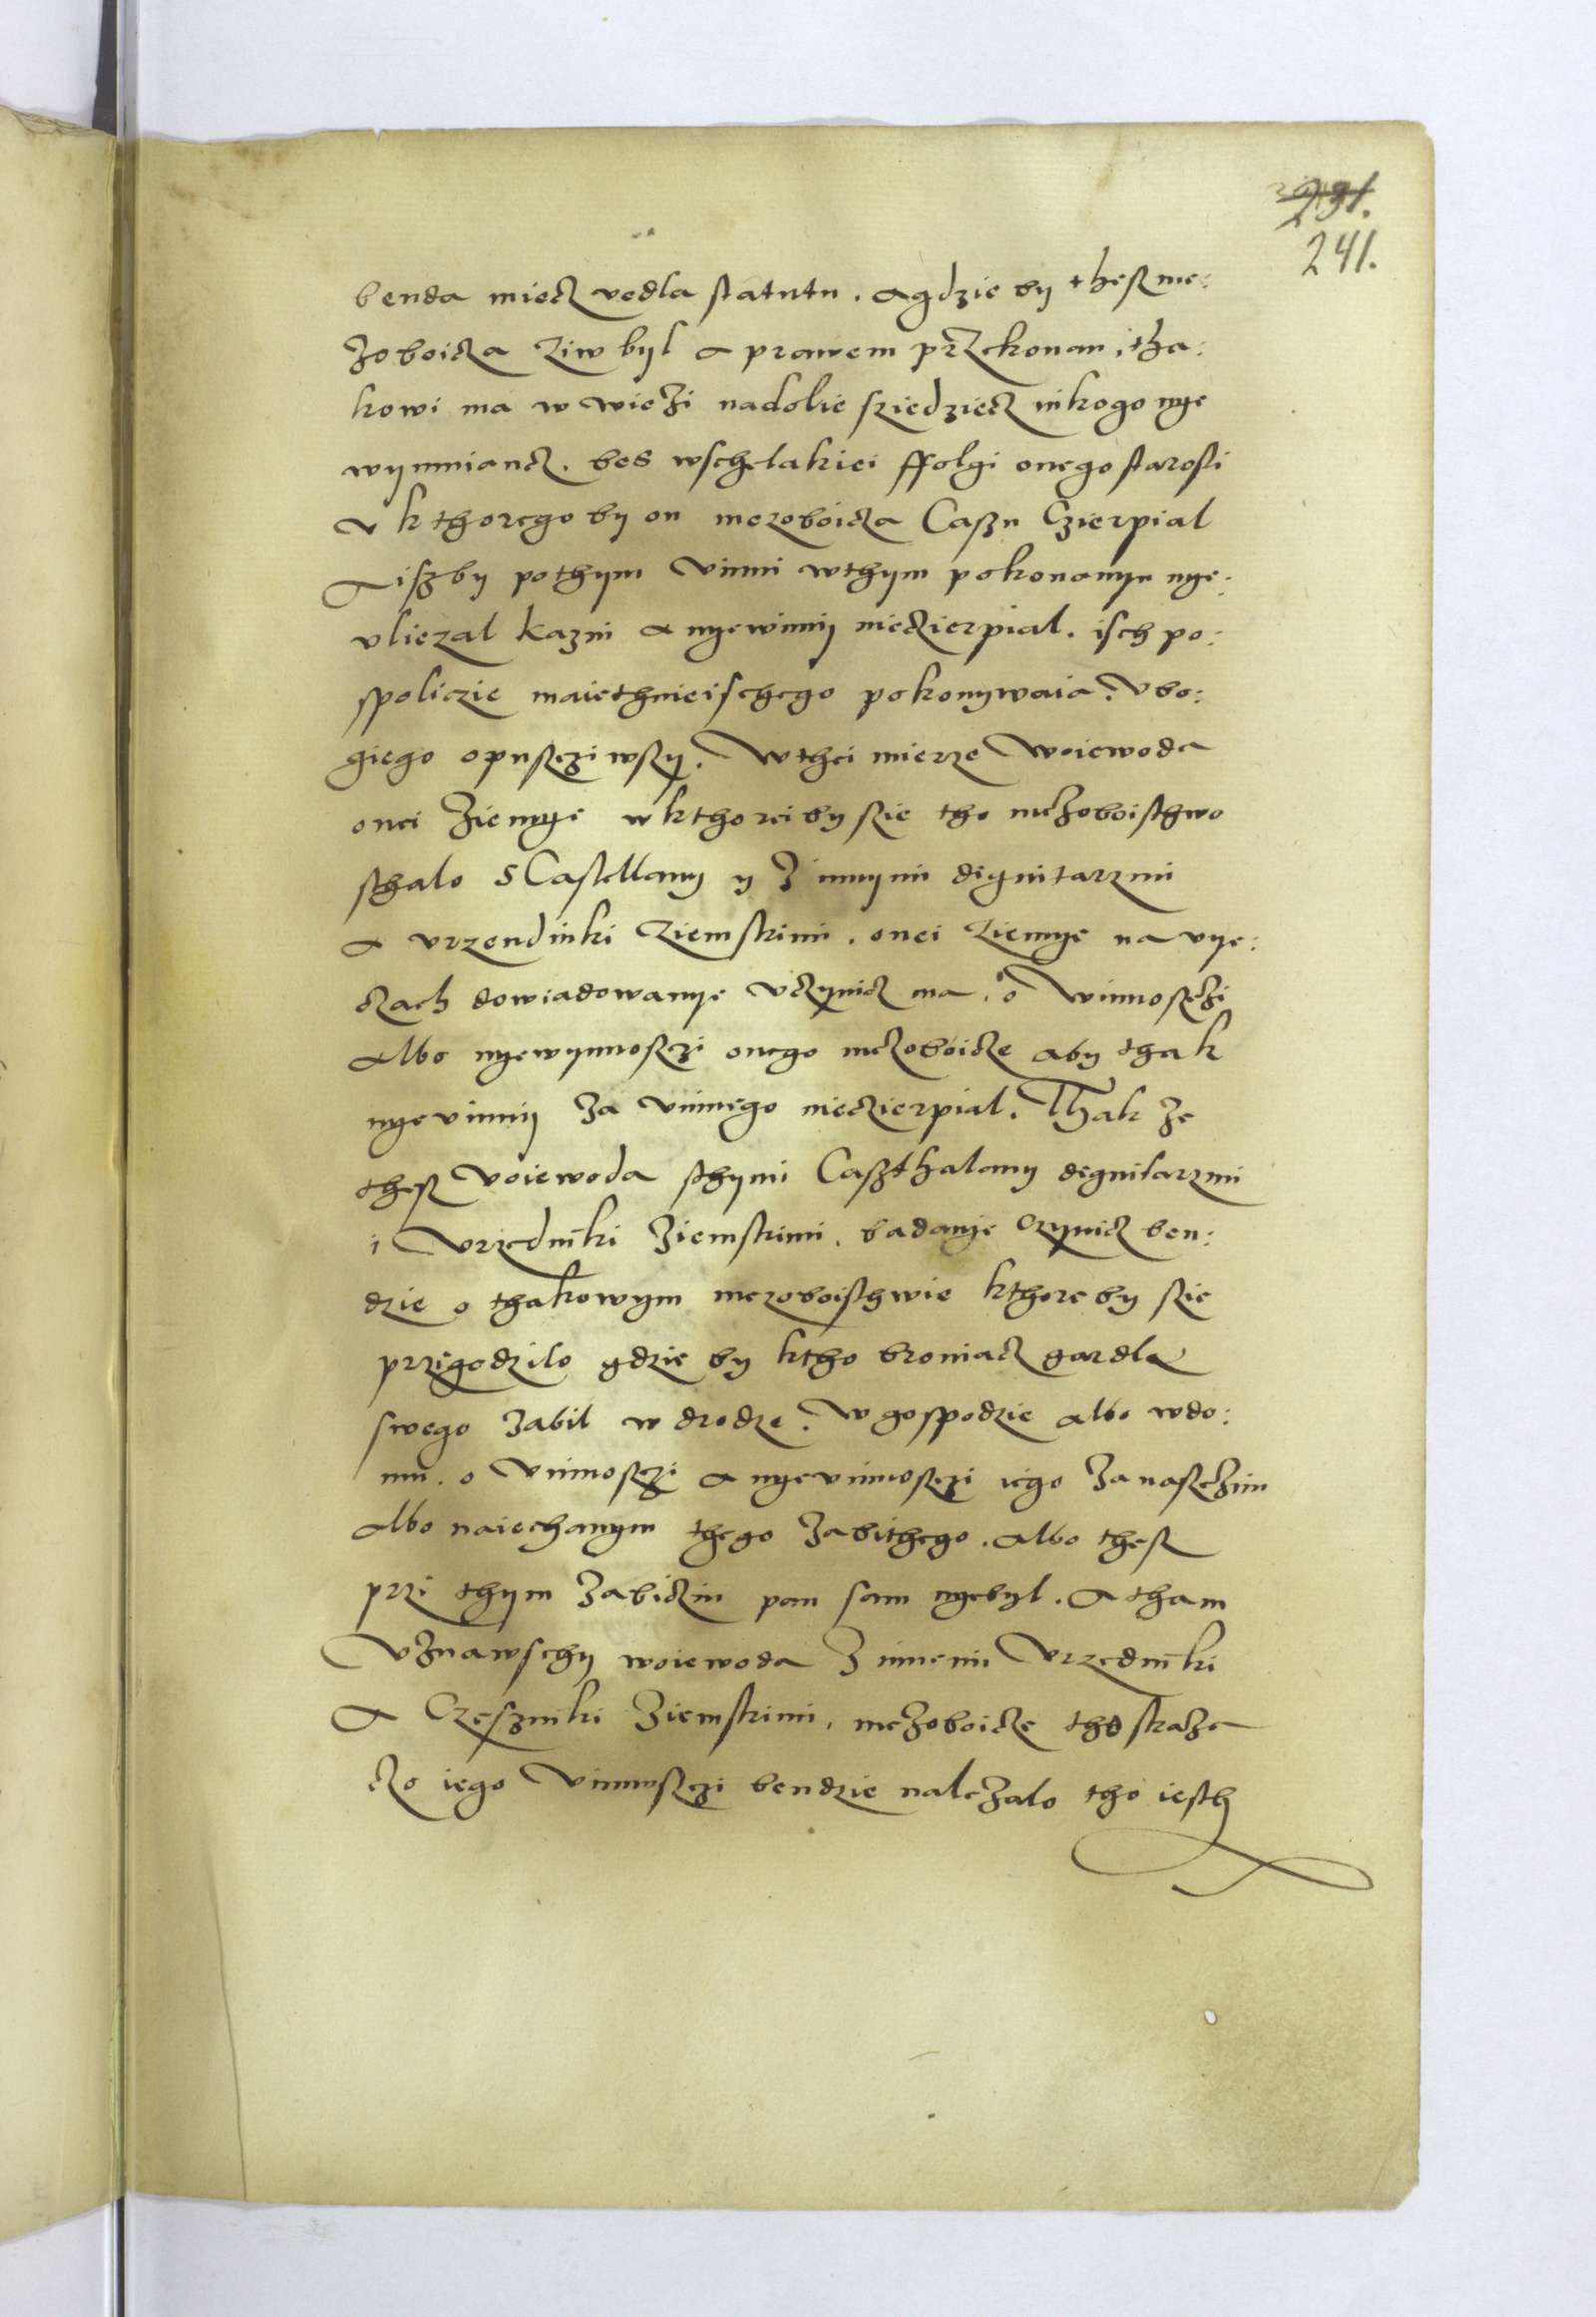 291.
241.
benda miecz vedla statutu. A gdzie by thesz me:
zoboicza ziw byl a prawem przekonan, tha:
kowi ma w wiezi nadolie sziedziecz nikogo nye
wymniancz. bes wschelakiei ffolgi onego starosti
v kthorego by on mezoboicza Caszn Czierpial
A iszby pothym vinni wthym pokonanyu nye:
vliezal kazni a nyewinny nieczierpial. isch po:
spoliczie maiethnieischego pokonywaia? vbo:
giego opusczi wszy. Wthei mierze Woiewoda
onei Ziemye w kthorei by szie tho mezoboisthwo
sthalo s Castellany y z innymi dignitarzmi
a vrzendniki Ziemskimi. onei Ziemye na vye:
czach dowiadowanye vczynicz ma. o winnosczi
Albo nyewynnosczi onego mezoboicze aby thak
nyevinny za vinnego nieczierpial. Thak ze
thesz voiewoda sthymi Caszthalany dignitarzmi
i Vrzedniki Ziemskimi. badanye Czynicz ben:
dzie o thakowym mezoboisthwie kthore by szie
przigodzilo gdzie by ktho broniacz gardla
swego zabil w drodze? W gospodzie albo wdo:
mu. o vinnosczi a nyevinnosczi iego za nasczim
Albo naiechanym thego zabithego. Albo thesz
przi thym zabicziu pan sam nyebyl. A tham
Vznawschy woiewoda z innemi Vrzedniki
A Czeszniki Ziemskimi, mezoboicze tho skaze
czo iego vinnosczi bendzie nalezalo tho iesth